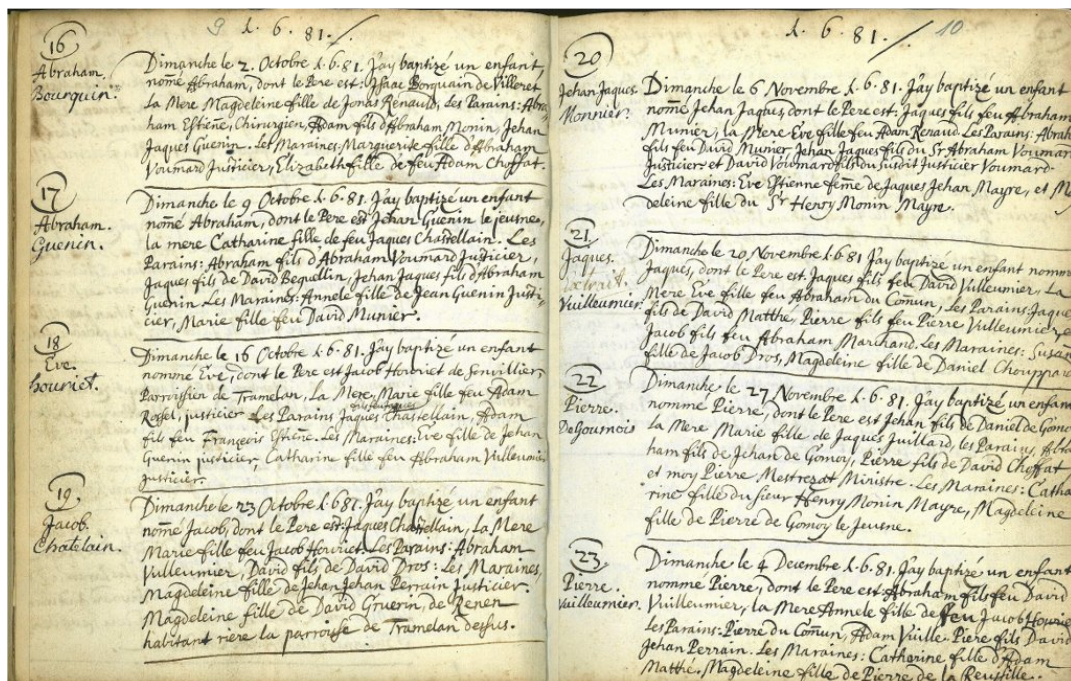 9 1.6.81.
16
Abraham.
Bourquin.
Dimanche le 2. Octobre 1.6.81. J'ay baptizé un enfant,
nomé Abraham, dont le Pere est: Isaac Borquain de Villeret
La Mere Magdeleine fille de Jonas Renauld, Les Parains: Abra-
ham Estiene, Chirurgien, Adam fils d'Abraham Monin, Jehan
Jaques Guenin. Les Maraines: Marguerite fille d'Abraham
Voumard Justicier, Elizabeth fille de feu Adam Choffat.
17
Abraham
Guenin.
Dimanche le 9 Octobre 1.6.81. J'ay baptizé un enfant
nomé Abraham, dont le Pere est Jehan Guenin le jeusne,
la mere Catharine fille de feu Jaques Chastellain. Les
Parains: Abraham fils d'Abraham Voumard Justicier,
Jaques fils de David Bequellin, Jehan Jaques fils d'Abraham
Guenin. Les Maraines: Annele fille de Jean Guenin Justi-
cier, Marie fille feu David Munier.
18
Eve.
houriet.
Dimanche le 16 Octobre 1.6.81. J'ay baptizé un enfant
nommé Eve, dont le Pere est Jacob Houriet de Sonvillier
Parroissien de Tramelan, La Mere, Marie fille feu Adam
Rossel, justicier Les Parains Jaques Chastellain, Adam
fils feu François Estiene. Les Maraines: Eve fille de Jehan
Guenin justicier, Catharine fille feu Abraham Vuilleumier
Justicier.
19
Jacob.
Chatelain.
Dimanche le 23 Octobre 1.6.81. J'ay baptizé un enfant
nomé Jacob, dont le Pere est: Jaques Chastellain, La Mere
Marie fille feu Jacob Houriet. Les Parains: Abraham
Vuilleumier, David fils de David Dros: Les Maraines,
Magdeleine fille de Jehan Jehan Perrain Justicier.
Magdeleine fille de David Gruerin, de Renen
habitant riere la parroise de Tramelan dessus.
1.6.81. 10
20
Jehan Jaques.
Monnier.
Dimanche le 6 Novembre 1.6.81. J'ay baptizé un enfant
nomé Jehan Jaques, dont le Pere est: Jaques fils feu Abraham
Munier, la Mere Eve fille feu Adam Renaud. Les Parains: Abrah
fils feu David Munier, Jehan Jaques fils du Sr Abraham Voumard
Justicier, et David Voumard fils du susdit Justicier Voumard.
Les Maraines: Eve Estienne feme de Jaques Jehan Mayre, et M
deleine fille du Sr Henry Monin Mayre.
21
Jaques.
extrait.
Vuilleumier.
Dimanche le 20 Novembre 1.6.81 J'ay baptizé un enfant nommé
Jaques, dont le Pere est. Jaques fils feu David Villeumier, La
Mere Eve fille feu Abraham du Comun, Les Parains: Jaque
fils de David Matthe, Pierre fils feu Pierre Villeumier, e
Jacob fils feu Abraham Marchand. Les Maraines: Susan
fille de Jacob Dros, Magdeleine fille de Daniel Chouppard
22
Pierre.
DeGournois
Dimanche le 27 Novembre 1.6.81. J'ay baptizé un enfant
nommé Pierre, dont le Pere est Jehan fils de Daniel de Gomo
La Mere Marie fille de Jaques Juillard, les Parains, Abra
ham fils de Jehan de Gomoy, Pierre fils de David Choffat
et moy Pierre Mestrezat Ministre. Les Maraines: Catha
rine fille du sieur Henry Monin Mayre, Magdeleine
fille de Pierre de Gomoy le Jeune.
23
Pierre.
Vuilleumier.
Dimanche le 4 Decembre 1.6.81. J'ay baptizé un enfant
nomme Pierre, dont le Pere est: Abraham fils feu David
Vuilleumier, la Mere Annele fille de feu Jacob Hourie
Les Parains: Pierre du Comun, Adam Vuille Piere fils David
Jehan Perrain. Les Maraines: Catherine fille d'Adam
Matthé. Magdeleine fille de Pierre de la Reussille.